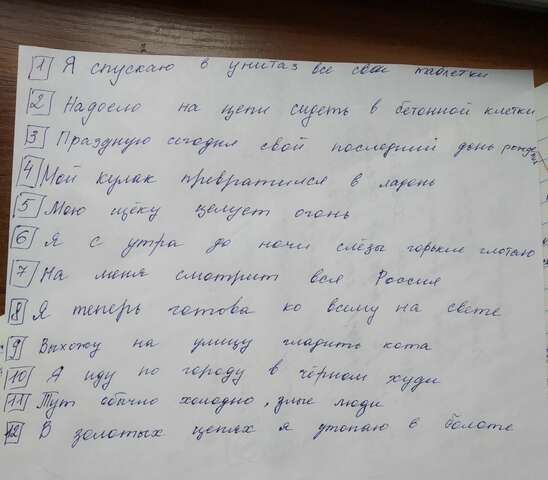 1 Я спускаю в унитаз все свои таблетки
2 Надоело на цепи сидеть в бетонной клетке
3 Праздную сегодня свой последний день рождения
4 Мой кулак превратился в ладонь
5 Мою щёку целует огонь
6 Я с утра до ночи слёзы горькие глотаю
7 На меня смотрит вся Россия
8 Я теперь готова ко всему на свете
9 Выхожу на улицу гладить кота
10 А иду по городу в чёрном худи
11 Тут обычно холодно, злые люди
12 В золотых цепях я утопаю в болоте